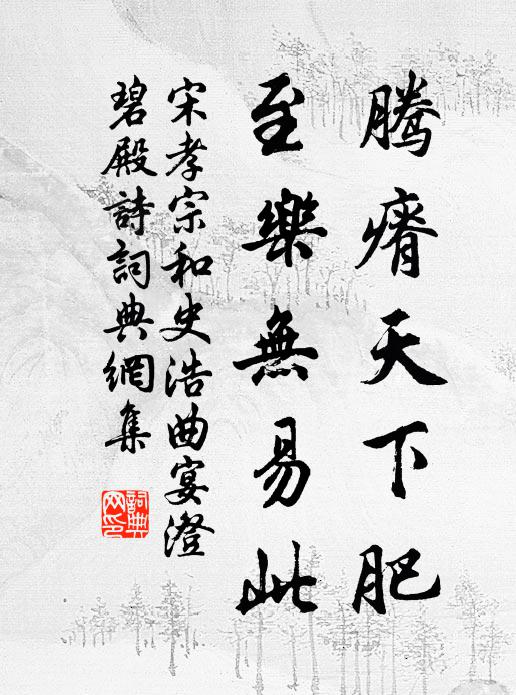 騰瘠天下肥
至樂無易此
宋孝宗和史浩曲宴澄
碧殿詩詞典網集
詞典网印